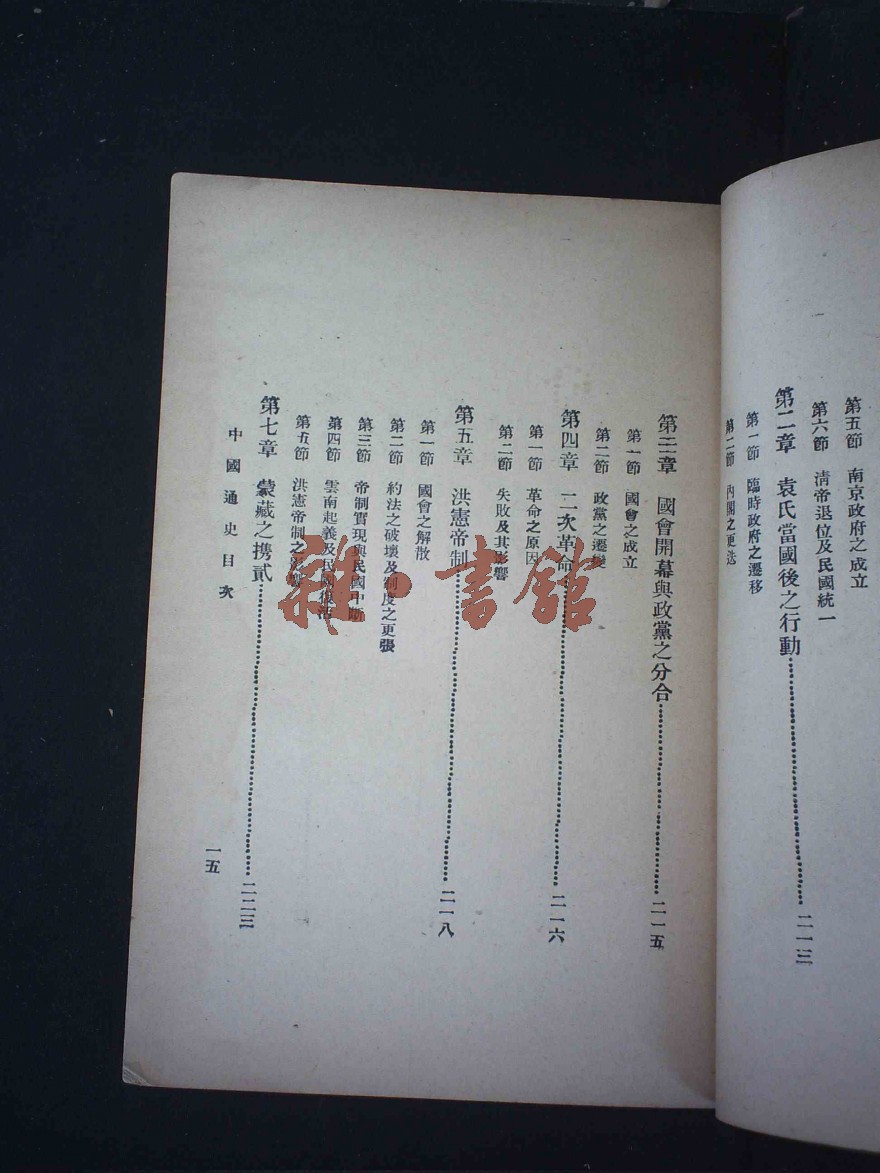 第五節　南京政府之成立
第六節　清帝退位及民國統一
第二章　袁氏當國後之行動……二一三
第一節　臨時政府之遷移
第二節　內閣之更迭
第三章　國會開幕與政黨之分合……二一五
第一節　國會之成立
第二節　政黨之遷變
第四章　二次革命……二一六
第一節　革命之原因
第二節　失敗及其影響
第五章　洪憲帝制……二一八
第一節　國會之解散
第二節　約法之破壞及制度之更張
第三節　帝制實現與民國中斷
第四節　雲南起義及民國復活
第五節　洪憲帝制之影響
第七章　蒙藏之携貳……二二三
中國通史目次
一五
雜·書館